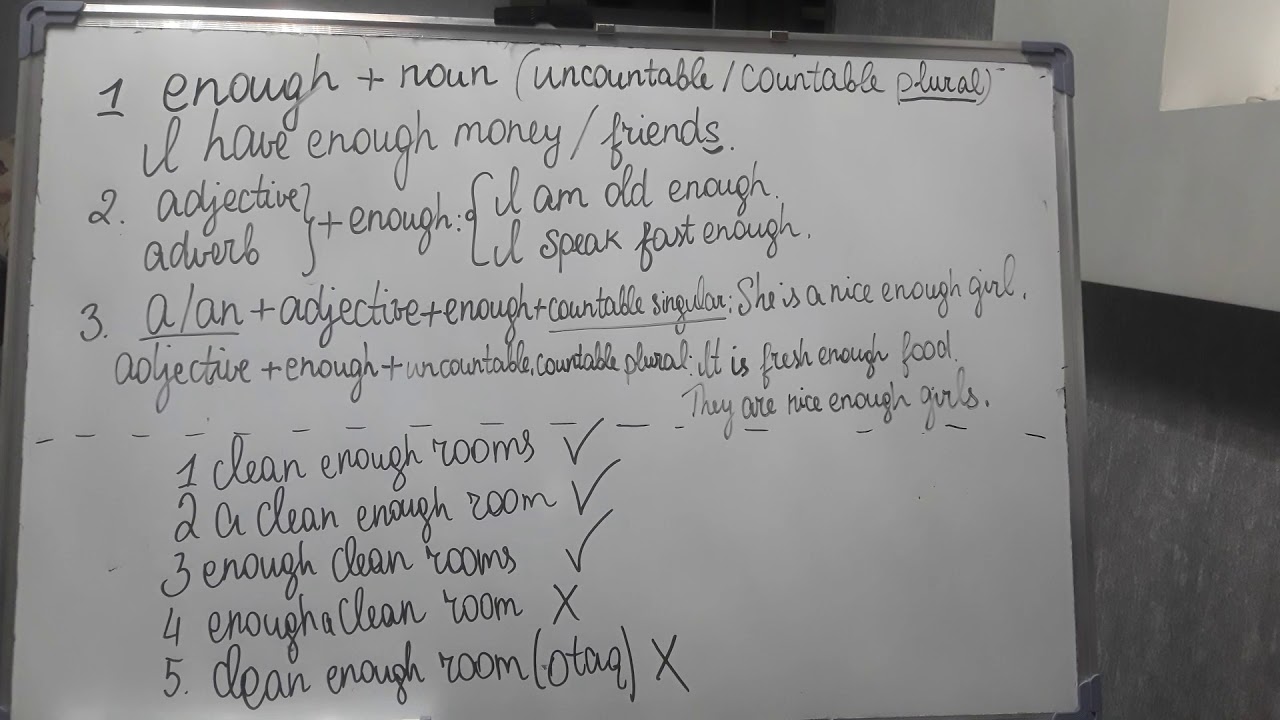 1 enough + noun (uncountable / countable plural)
I have enough money / friends.
2. adjective } + enough: { I am old enough.
adverb I speak fast enough.
3. a/an + adjective + enough + countable singular: She is a nice enough girl.
adjective + enough + uncountable, countable plural: It is fresh enough food.
They are nice enough girls.
1 clean enough rooms ✓
2 a clean enough room ✓
3 enough clean rooms ✓
4 enough a clean room X
5. clean enough room (otaq) X